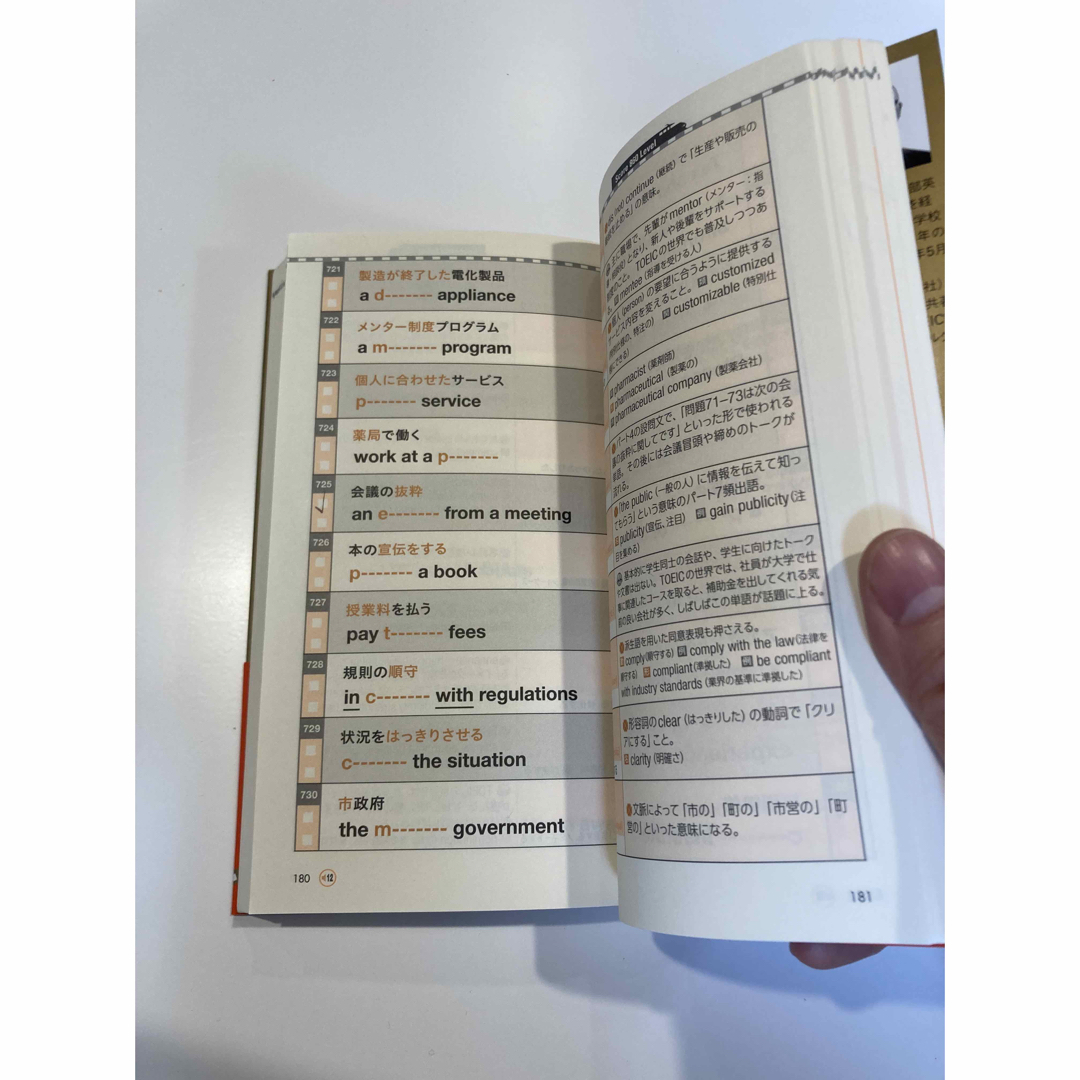 721
製造が終了した電化製品
a d------- appliance
722
メンター制度プログラム
a m------- program
723
個人に合わせたサービス
p------- service
724
薬局で働く
work at a p-------
725
会議の抜粋
an e------- from a meeting
726
本の宣伝をする
p------- a book
727
授業料を払う
pay t------- fees
728
規則の順守
in c------- with regulations
729
状況をはっきりさせる
c------- the situation
730
市政府
the m------- government
180 12
Score 860 Level
continue (継続) で「生産や販売の
を止める」の意味。
に職場で、先輩がmentor (メンター:指
となり、新人や後輩をサポートする
のこと。TOEICの世界でも普及しつつあ
る。mentee (指導を受ける人)
個人 (person) の要望に合うように提供する
サービス内容を変えること。 customized
(特別仕様の、特注の) customizable (特別仕
にできる)
pharmacist (薬剤師)
pharmaceutical (製薬の)
pharmaceutical company (製薬会社)
パート4の設問文で、「問題71–73は次の会
議の抜粋に関してです」といった形で使われる
単語。その後には会議冒頭や締めのトークが
流れる。
「the public (一般の人) に情報を伝えて知っ
てもらう」という意味のパート7頻出語。
publicity (宣伝、注目) 例 gain publicity (注
目を集める)
基本的に学生同士の会話や、学生に向けたトーク
や文書は出ない。TOEICの世界では、社員が大学で仕
事に関連したコースを取ると、補助金を出してくれる気
前の良い会社が多く、しばしばこの単語が話題に上る。
派生語を用いた同意表現も押さえる。
comply (順守する) 例 comply with the law (法律を
順守する) compliant (準拠した) 例 be compliant
with industry standards (業界の基準に準拠した)
形容詞のclear (はっきりした) の動詞で「クリ
アにする」こと。
clarity (明確さ)
文脈によって「市の」「町の」「市営の」「町
営の」といった意味になる。
181
部英
を経
学校
年の
年5月
社)
共著
EIC